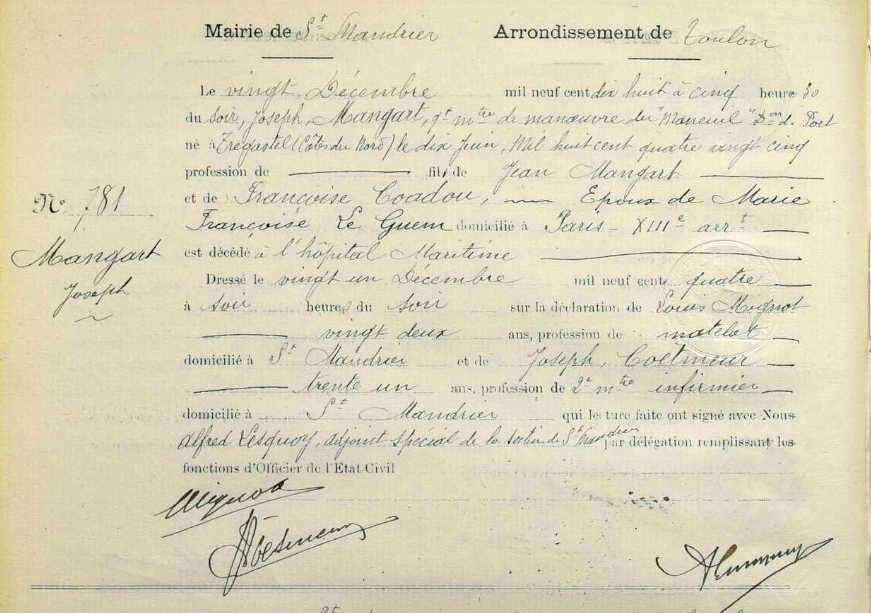 Mairie de St Mandrier Arrondissement de Toulon
Le vingt Décembre mil neuf cent dix huit à cinq heure 30
du soir, Joseph, Mangart, qr mtre de manœuvre du "Maneuil" Don du Port
né à Trégastel (Côtes du Nord) le dix Juin, Mil huit cent quatre vingt cinq
profession de fils de Jean Mangart
et de Françoise Coadou, Epoux de Marie
Françoise Le Guem domicilié à Paris - XIIIe arrt
est décédé à l'hôpital Maritime
Nº 781
Mangart
Joseph
Dressé le vingt un Décembre mil neuf cent quatre
à soir heures du soir sur la déclaration de Louis Mignot
vingt deux ans, profession de matelot
domicilié à St Mandrier et de Joseph, Coetmeur
trente un ans, profession de 2e mtre infirmier
domicilié à St Mandrier qui lecture faite ont signé avec Nous
Alfred Lesquoy, adjoint spécial de la section de St Mandrier par délégation remplissant les
fonctions d'Officier de l'Etat Civil
Mignot